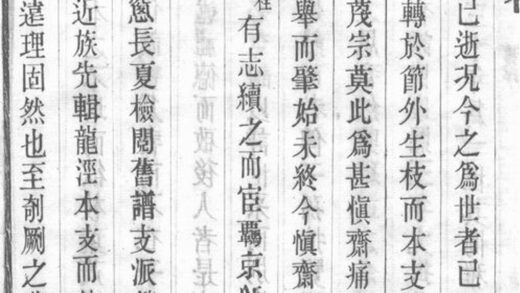 已逝况今之爲世者已
轉於節外生枝而本支
茂宗莫此爲甚愼齋痛
舉而肇始未終今愼齋
有志續之而宦羈京
長夏檢閱舊譜支派
近族先輯龍涇本支而
遠理固然也至剞劂之